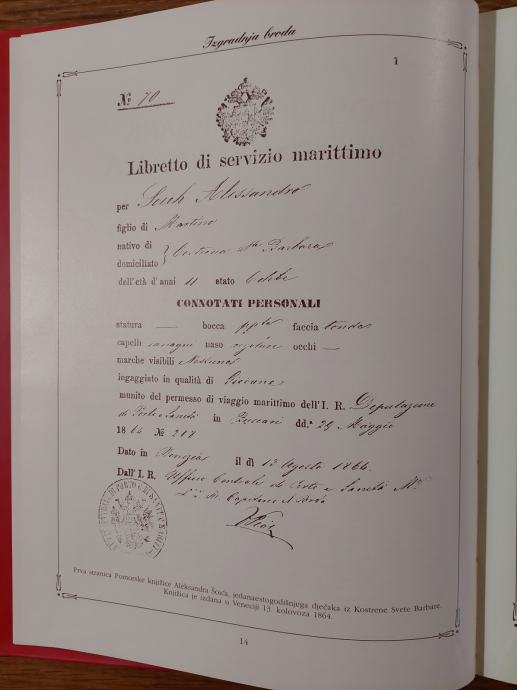 Izgradnja broda
1
№ 70
Libretto di servizio marittimo
per Suih Alessandro
figlio di Martino
nativo di
domiciliato } Costrena Sta Barbara
dell'età d'anni 11 stato Celibe
CONNOTATI PERSONALI
statura — bocca ppta faccia tonda
capelli castagni naso regolare occhi —
marche visibili Nessuna
ingaggiato in qualità di Giovane
munito del permesso di viaggio marittimo dell'I. R. Deputazione
di Porto e Sanità in Buccari dd.° 29 Maggio
1864 № 217
Dato in Venezia il dì 13 Agosto 1864.
Dall'I. R. Uffico Centrale di Porto e Sanità
Capitano
Prva stranica Pomorske knjižice Aleksandra Šoića, jedanaestogodišnjega dječaka iz Kostrene Svete Barbare.
Knjižica je izdana u Veneciji 13. kolovoza 1864.
14